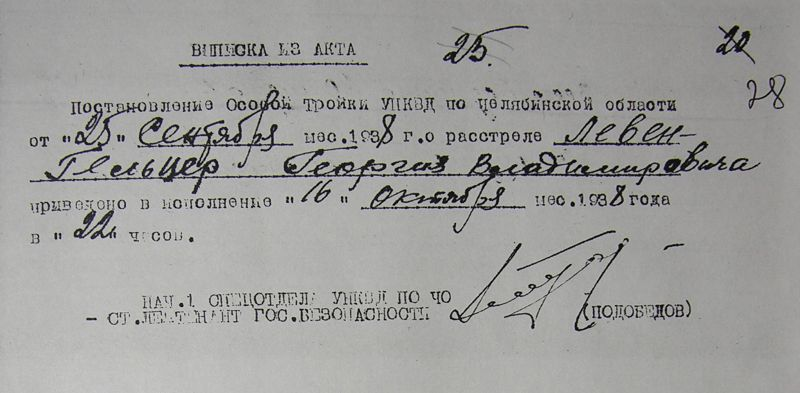 ВЫПИСКА ИЗ АКТА
25.
20
28
Постановление Особой Тройки УНКВД по Челябинской области
от "25" Сентября мес. 1938 г. о расстреле Левен-
Гельцер Георгия Владимировича
приведено в исполнение "16" октября мес. 1938 года
в "22" часов.
НАЧ.1 СПЕЦОТДЕЛА УНКВД ПО ЧО
- СТ.ЛЕЙТЕНАНТ ГОС.БЕЗОПАСНОСТИ (ПОДОБЕДОВ)